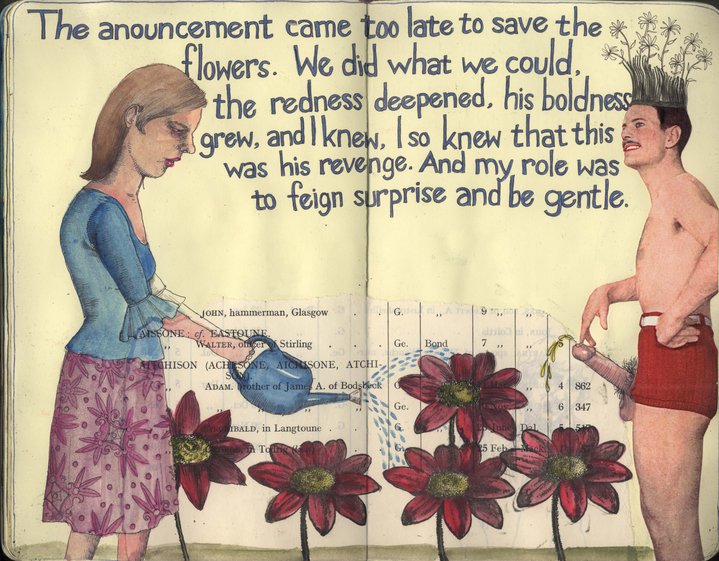 The anouncement came too late to save the
flowers. We did what we could,
the redness deepened, his boldness
grew, and I knew, I so knew that this
was his revenge. And my role was
to feign surprise and be gentle.
JOHN, hammerman, Glasgow . G. ,, 9 ,,
AISSONE: cf. EASTOUNE.
WALTER, of Stirling . G. Bond 7 ,,
AITCHISON (ACHESONE, AICHISONE, ATCHI-
SON).
ADAM, brother of James A. of Bodsbeck G. 4 862
,, ,, ,, Ge. 6 347
in Langtoune . G. Dal. 5
in G. 25 Feb. Mack.